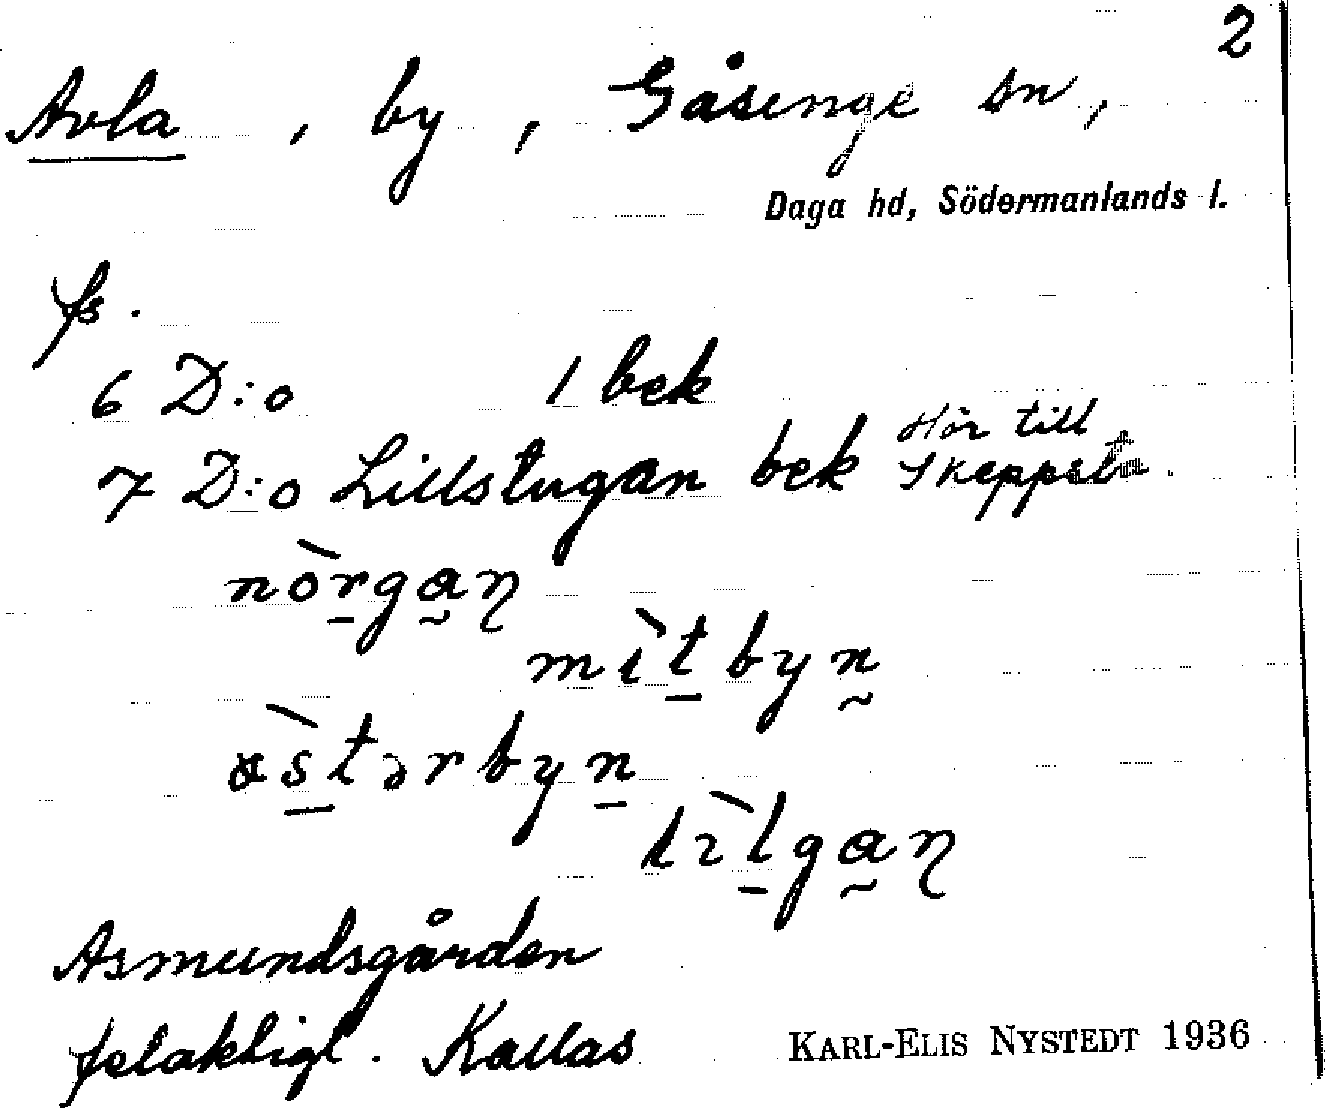 2
Avla, by, Gåsinge sn,
Daga hd, Södermanlands l.
fs.
6 D:o 1 bek
7 D:o Lillstugan bek Hör till Skeppsta.
nòrgan
mìtbyn
östərbyn
lìlgan
Asmundsgården
felaktigt. Kallas
KARL-ELIS NYSTEDT 1936